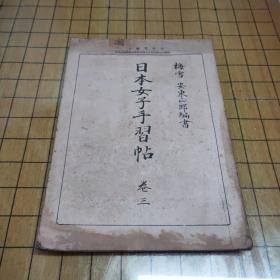 梅雪 安東山郎編書
日本女子手習帖
巻三